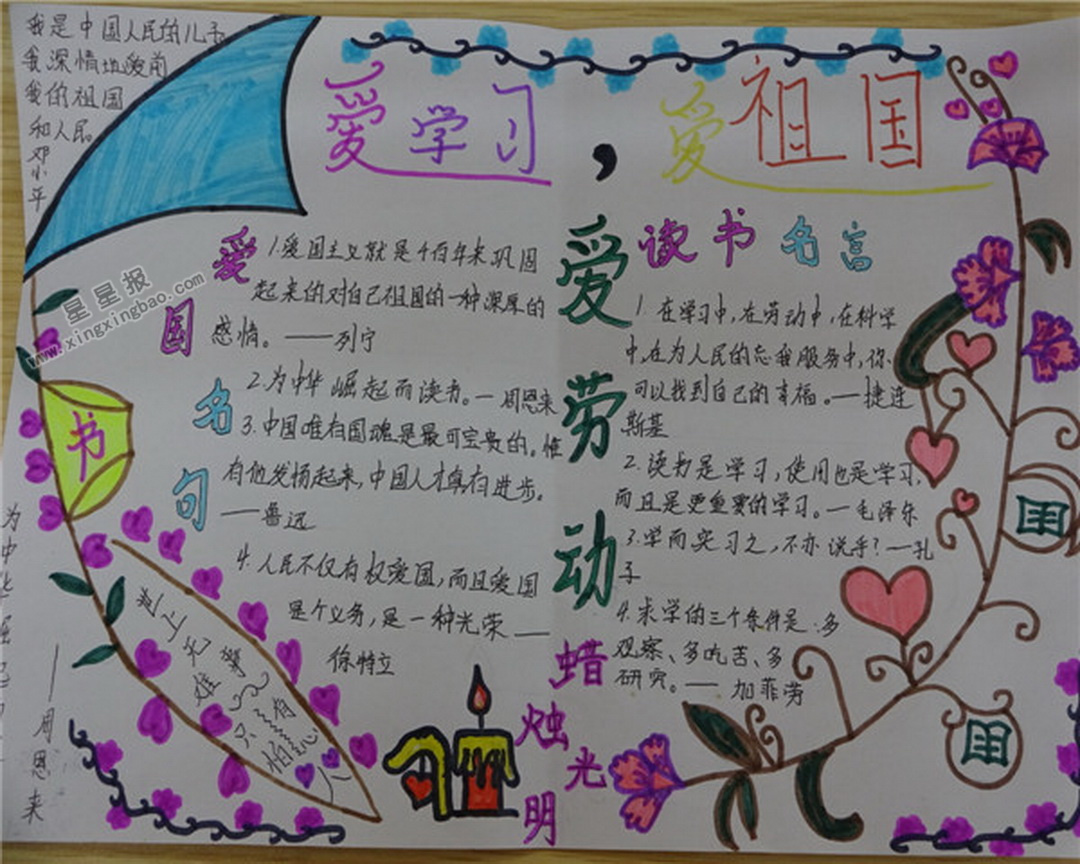 我是中国人民的儿子
我深情地爱前
我的祖国
和人民
邓小平
爱学习，爱祖国
星星报
www.xingxingbao.com
爱国名句
1.爱国主义就是千百年来巩固
起来的对自己祖国的一种深厚的
感情。——列宁
2.为中华崛起而读书。—周恩来
3.中国唯有国魂是最可宝贵的。惟
有他发扬起来,中国人才真有进步。
——鲁迅
4.人民不仅有权爱国,而且爱国
是个义务,是一种光荣——
徐特立
书
世上无难事
只怕有心人
为中华崛起
——周恩来
爱劳动
读书名言
1.在学习中,在劳动中,在科学
中,在为人民的忘我服务中,你
可以找到自己的幸福。—捷连
斯基
2.读书是学习,使用也是学习,
而且是更重要的学习。—毛泽东
3.学而实习之,不亦说乎?—孔
子
4.求学的三个条件是:多
观察、多吃苦、多
研究。——加菲劳
蜡烛光明